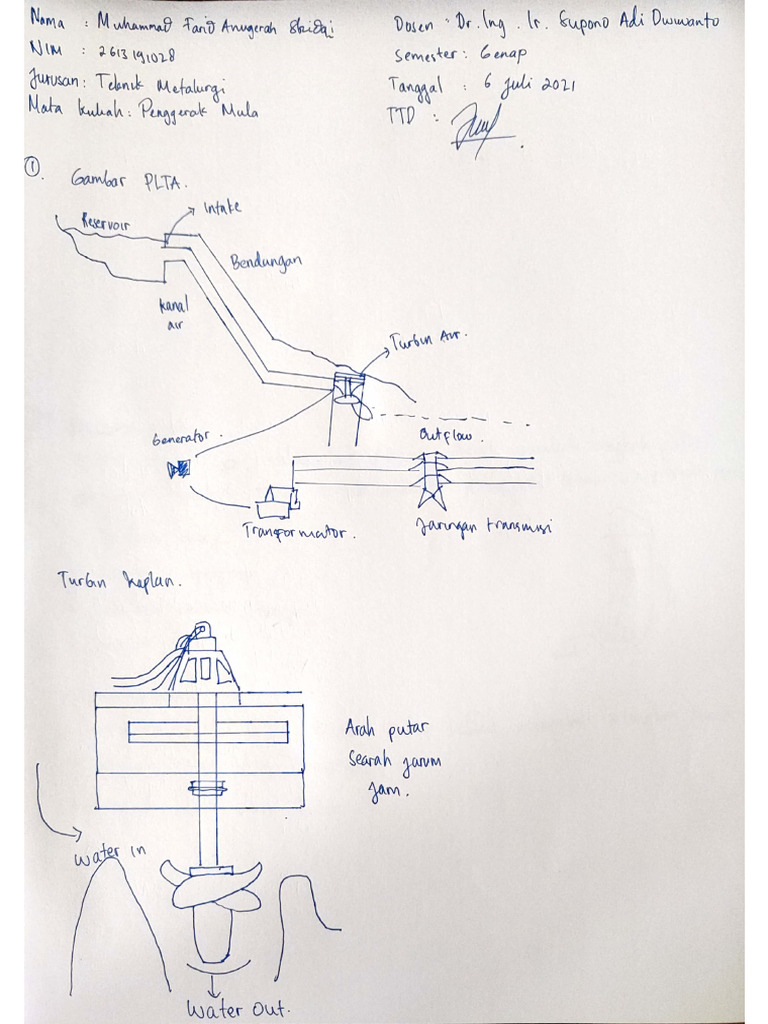 Nama : Muhammad Farid Anugerah Shidqi
NIM : 2613191028
Jurusan : Teknik Metalurgi
Mata Kuliah : Penggerak Mula
Dosen : Dr. Ing. Ir. Supono Adi Dwiwanto
Semester : Genap
Tanggal : 6 Juli 2021
TTD :
①. Gambar PLTA.
Reservoir
Intake
Bendungan
Kanal
air
Turbin Air.
Generator.
Outflow.
Transformator.
Jaringan transmisi
Turbin Kaplan.
Arah putar
Searah jarum
Jam.
Water in
Water Out.